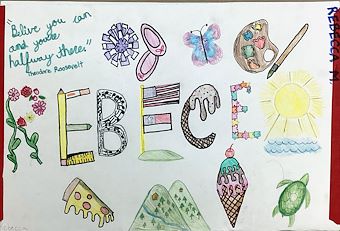 "Belive you can
and you're
halfway there."
Theodore Roosevelt
REBECE
REBECCA M.